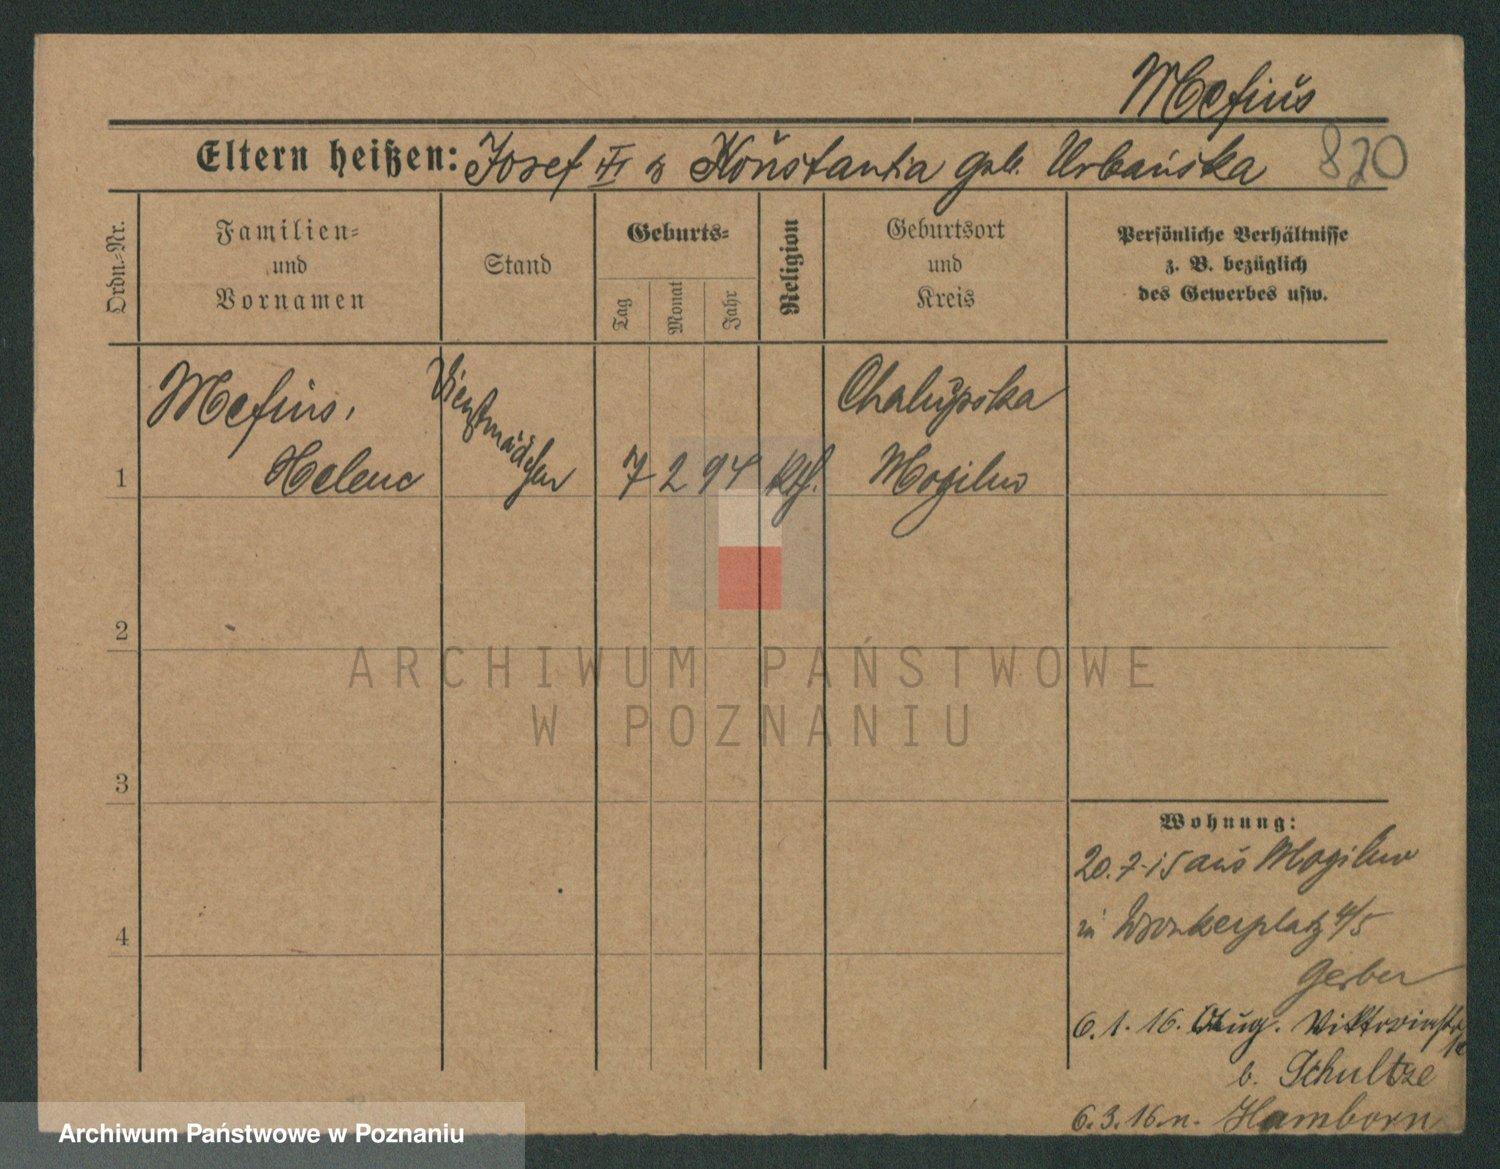 Mefius
Eltern heißen: Josef u Konstantia geb. Urbańska
820
Ordn.-Nr.
Familien-
und
Vornamen
Stand
Geburts-
Tag
Monat
Jahr
Religion
Geburtsort
und
Kreis
Persönliche Verhältnisse
z. B. bezüglich
des Gewerbes usw.
1
Mefius,
Helene
Dienstmädchen
7 2 94
kth.
Chalupska
Mogilno
2
3
4
ARCHIWUM PAŃSTWOWE
W POZNANIU
Wohnung:
20.7.15 aus Mogilno
in Wronkerplatz 4/5
Gerber
6.1.16. Aug. Viktoriastr
b. Schultze
6.3.16. n. Hamborn
Archiwum Państwowe w Poznaniu